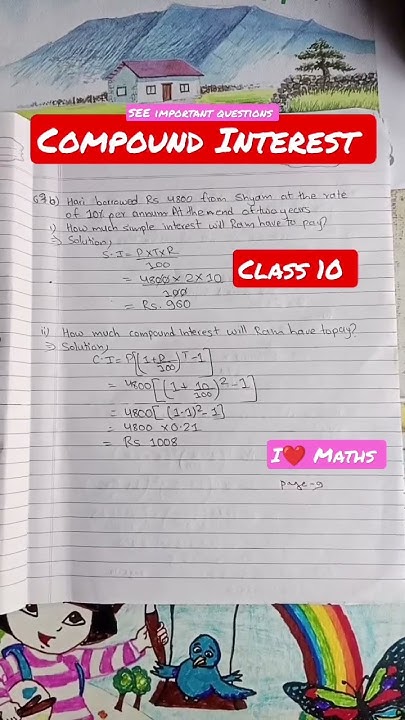 SEE important questions
Compound Interest
b) Hari borrowed Rs 4800 from Shyam at the rate
of 10% per annum. At the end of two years
i) How much simple interest will Ram have to pay?
⇒ Solution,
S.I = P×T×R
100
= 4800 × 2 × 10
100
= Rs. 960
Class 10
ii) How much compound interest will Ram have to pay?
⇒ Solution,
C.I = P[(1+R/100)^T-1]
= 4800[(1+10/100)^2-1]
= 4800[(1.1)^2-1]
= 4800 × 0.21
= Rs 1008
I❤️ Maths
page-9